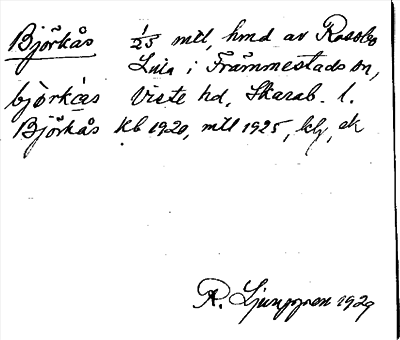 Björkås 1/25 mtl, hmd av Rosobo
Lnia i Främmestads sn,
björkås Viste hd, Skarab. l.
Björkås Kb 1920, mtl 1925, klg, ek
R. Ljunggren 1929